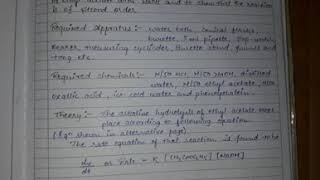 of ethyl acetate with NaOH and to show that the reaction
is of second order.
Required Apparatus:- Water bath, conical flasks,
burette, 5 ml pipette, stop watch,
beaker, measuring cylinder, burette stand, funnel and
tong etc.
Required chemicals:- N/50 HCl, N/50 NaOH, distilled
water, N/50 ethyl acetate, N/50
oxallic acid, ice cold water and phenolphthalein.
Theory:- The alkaline hydrolysis of ethyl acetate takes
place according to following equation
(Eqn shown in alternative page).
The rate equation of that reaction is found to be
dx/dt or rate = K [CH3COOC2H5] [NaOH]